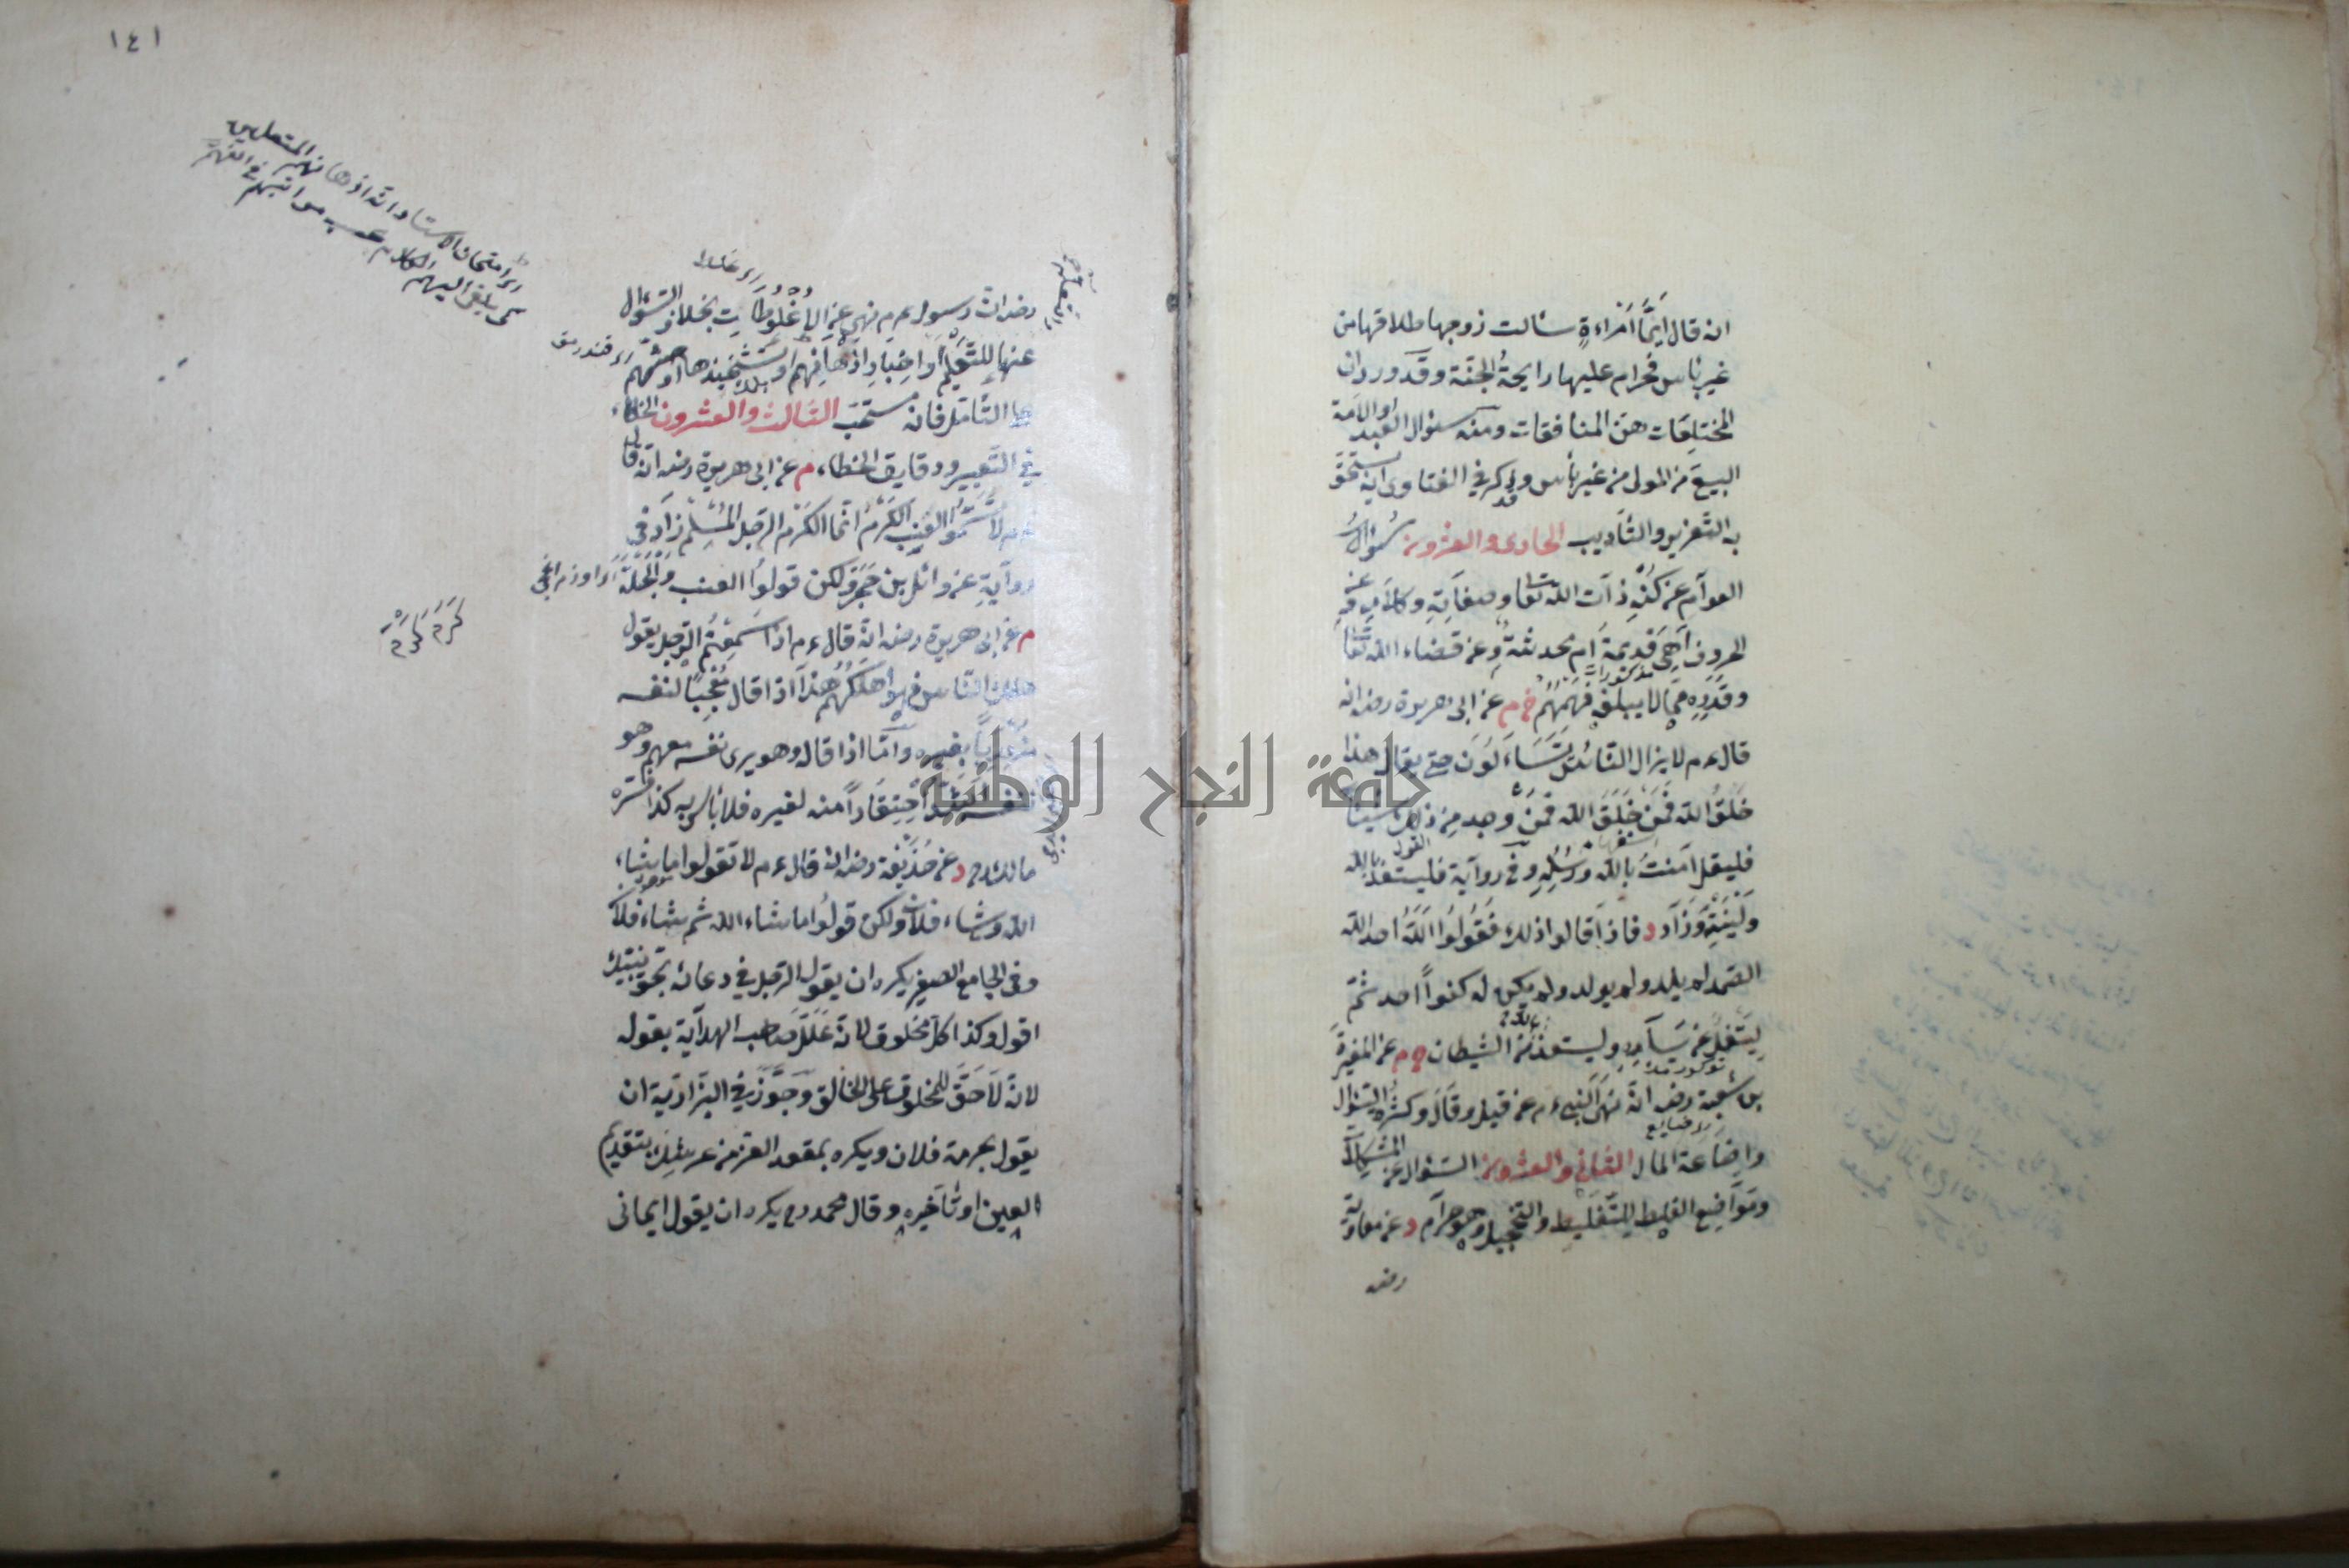 انه قال ايما امراءة سئالت زوجها طلاقها من
غير بأس فحرام عليها رايحة الجنة وقد ورد ان
المختلعات هن المنافقات ومنه سؤال العبد او الامة
البيع من المولى من غير بأس وقد ذكر في الفتاوى انه يستحق
به التعزير والتأديب الحادى والعشرون سؤال
العوام عن كنه ذات الله تعا وصفاته وكلامه وعن
الحروف اهى قديمة ام محدثة وعن قضاء الله تعا
وقدره مما لا يبلغ فهمهم خ م عن ابى هريرة رضه انه
قال ءم لا يزال الناس يتساءلون حتى يقال هذا
خلق الله فمن خلق الله فمن وجد من ذلك شيئا
فليقل آمنت بالله ورسله وفى رواية فليستعذ بالله
ولينته وزاد د فاذا قالوا ذلك فقولوا الله احد الله
الصمد لم يلد ولم يولد ولم يكن له كفوا احد ثم
ليتفل عن يساره وليستعذ من الشيطان خ م عن المغيرة
بن شعبة رضه انه نهى النبى ءم عن قيل وقال وكثرة السؤال
واضاعة المال الثانى والعشرون السؤال عن المشكلات
ومواضع الغلط للتغليط والتخجيل وهو حرام د عن معاوية
رضه
١٤١
اى امتحان الاستاد اذهانهم المتعلمين
كى يلقى اليهم الكلام حسب مراتبهم فى الفهم
رضه ان رسول ءم نهى عن الاغلوطات بخلاف السؤال
عنها للتعليم او اختبار اذهانهم او تشحيذها او حثهم
على التأمل فانه مستحب الثالث والعشرون الخطاء
فى التعبير ودقايق الخطاء م عن ابى هريرة رضه انه قال
ءم لا تسموا العنب الكرم انما الكرم الرجل المسلم زاد فى
رواية عن وائل بن حجر ولكن قولوا العنب والحبلة
كرم كرم
م عن ابى هريرة رضه انه قال ءم اذا سمعتم الرجل يقول
هلك الناس فهو اهلكهم هذا اذا قال معجبا لنفسه
مزريا بغيره واما اذا قاله وهو يرى نفسه معهم وهو
احتقارا منه لغيره فلا بأس به كذا فسره
مالك رح د عن حذيفة رضه انه قال ءم لا تقولوا ما شاء
الله وشاء فلان ولكن قولوا ما شاء الله ثم شاء فلان
وفى الجامع الصغير يكره ان يقول الرجل فى دعائه بحق نبيك
اقول وكذا كل مخلوق لانه علل صاحب الهداية بقوله
لانه لا حق للمخلوق على الخالق وجوز فى البزازية ان
يقول بحرمة فلان ويكره بمقعد العز من عرشك بتقديم
العين او تأخيره وقال محمد رح يكره ان يقول ايمانى
جامعة النجاح الوطنية